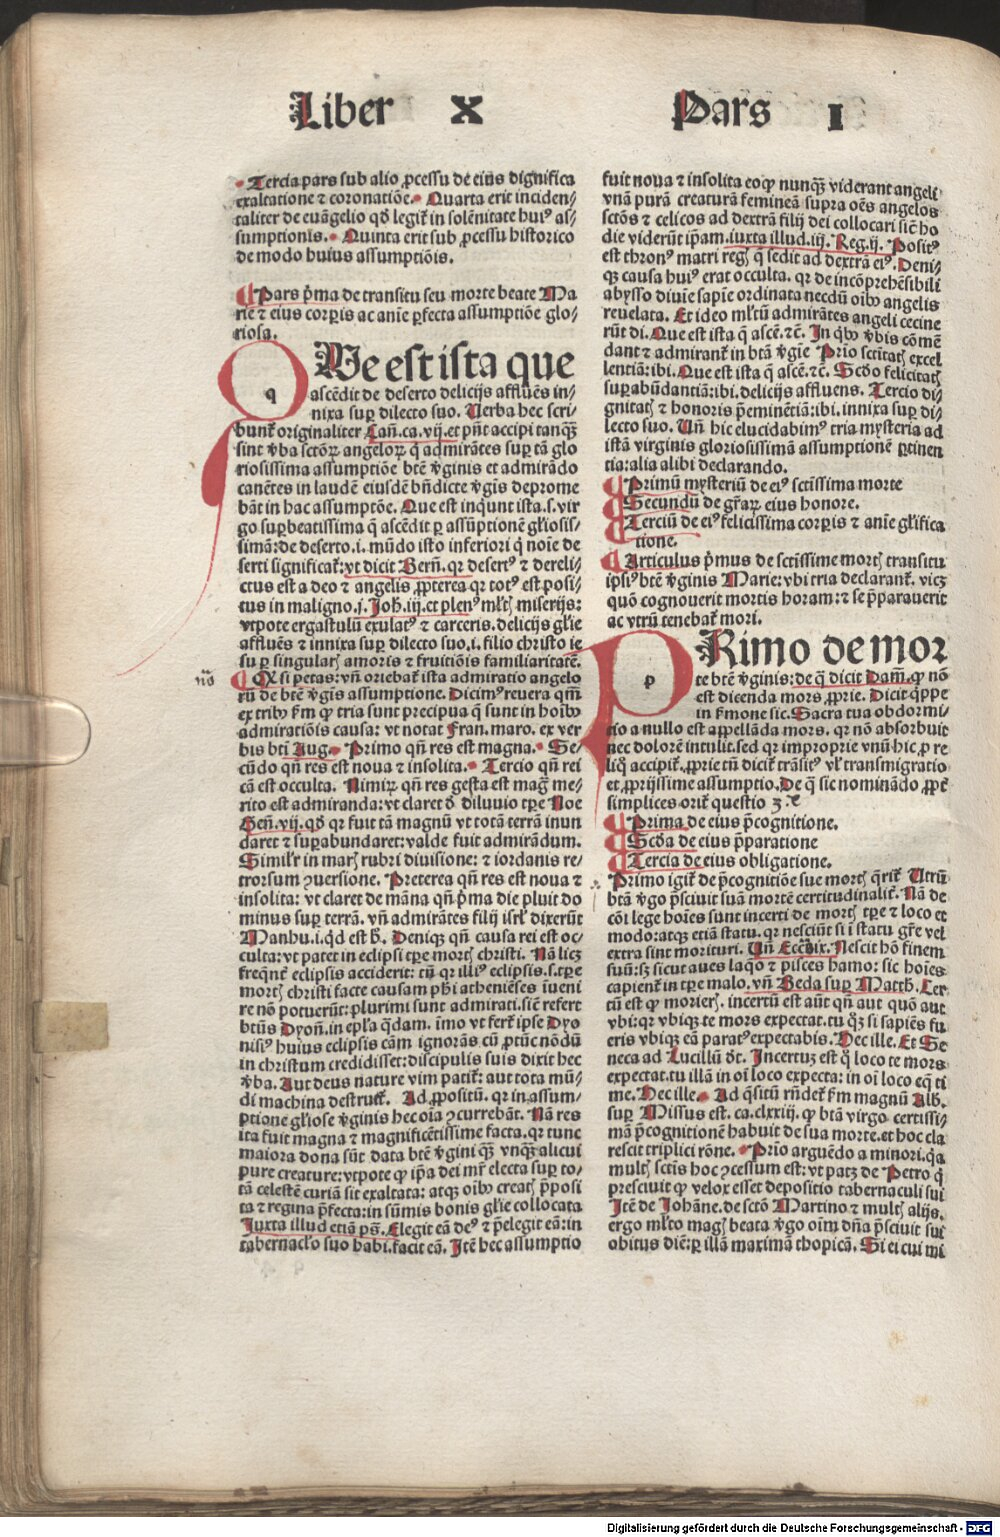 Liber X Pars I
Tercia pars sub alio ꝓcessu de eius dignifica
exaltatione ⁊ coronatiōe. Quarta erit inciden-
taliter de euāgelio qđ legit᷑ in solēnitate huiꝰ as-
sumptionis. Quinta erit sub ꝓcessu historico
de modo huius assumptiōis.
¶ Pars p̄ma de transitu seu morte beate Ma
rie ⁊ eius corꝑis ac anīe ꝑfecta assumptiōe glo-
riosa.
QUe est ista que
q
ascēdit de deserto delicijs affluēs in-
nixa suꝑ dilecto suo. Uerba hec scri-
bunt᷑ originaliter Cań.ca.vij.et pn̄t accipi tanqȝ
sint v̓ba sctōꝝ angeloꝝ q̇ admirātes suꝑ tā glo
riosissima assumptiōe btē v̓ginis et admirādo
canētes in laudē eiusdē bn̄dicte v̓gīs deprome
bāt in hac assumptōe. Que est inqunt ista.s.vir
go suꝑbeatissima q̄ ascēdit ꝑ assūptionē gl̓iosis-
simā:de deserto.i. mūdo isto inferiori q̇ noīe de
serti significat᷑:vt dicit Berń. qꝛ desertꝰ ⁊ dereli-
ctus est a deo ⁊ angelis ꝓpterea qꝛ totꝰ est posi-
tus in maligno.j. Joh̄.iij.et plenꝰ ml̓tꝭ miserijs:
vtpote ergastulū exulatꝰ ⁊ carceris.delicijs gl̓ie
affluēs ⁊ innixa suꝑ dilecto suo.i. filio christo ie
su ꝑ singularꝭ amoris ⁊ fruitiōis familiaritatē.
¶ Qḋ si petas:vn̄ oriebat᷑ ista admiratio angelo
rū de btē v̓gīs assumptione. Dicimꝰ reuera qm̄
ex tribꝰ ẜm ꝙ tria sunt precipua q̄ sunt in hoībꝰ
admiratiōis causa: vt notat Fran. maro. ex ver
bis bti Aug. Primo qn̄ res est magna. Se-
cūdo qn̄ res est noua ⁊ insolita. Tercio qn̄ rei
cā est occulta. Nimirꝝ qn̄ res gesta est mag̅ me-
rito est admiranda:vt claret ḋ diluuio tꝑe Noe
Geń.vij.qđ qꝛ fuit tā magnū vt totā terrā inun
daret ⁊ suꝑabundaret:valde fuit admirādum.
Similr̓ in marꝭ rubri diuisione: ⁊ iordanis re-
trorsum ꝯuersione. Preterea qn̄ res est noua ⁊
insolita: vt claret de māna qn̄ p̄ma die pluit do
minus suꝑ terrā. vn̄ admirātes filij isrl̓ dixerūt
Manhu.i.qd est h̓. Deniqȝ qn̄ causa rei est oc-
culta:vt patet in eclipsi tꝑe mortꝭ christi. Nā licȝ
freqn̄t᷑ eclipsis acciderit: tn̄ qꝛ illiꝰ eclipsis.s.tꝑe
mortꝭ christi facte causam ph̓i atheniēses īueni
re nō potuerūt:plurimi sunt admirati.sic̄ refert
btūs Dyoń.in epl̓a q̇dam. imo vt fert᷑ ipse Dyo
nisiꝰ huius eclipsis cām ignorās cū ꝓtūc nōdū
in christum credidisset:discipulis suis dixit hec
v̓ba. Aut deus nature vim patit᷑: aut tota mū-
di machina destruet᷑. Ad ꝓpositū. qꝛ in assum-
ptione gl̓iose v̓ginis hec oīa ꝯcurrebāt. Nā res
ita fuit magna ⁊ magnificētissime facta.qꝛ tunc
maiora dona sūt data btē v̓gini qȝ vnqȝ alicui
pure creature:vtpote ꝙ ip̄a dei mr̄ electa suꝑ to-
tā celestē curiā sit exaltata: atqȝ oībꝰ creatꝭ p̄posi
ta ⁊ regina ꝑfecta:in sūmis bonis gl̓ie collocata
Juxta illud etiā pṡ. Elegit eā deꝰ ⁊ p̄elegit eā:in
tabernacl̓o suo habi.facit eā. Jtē hec assumptio
fuit noua ⁊ insolita eo ꝙ nunqȝ viderant angeli
vnā purā creaturā femineā supra oēs angelos
sctōs ⁊ celicos ad dextrā filij dei collocari sic̄ ho
die viderūt ip̄am.iuxta illud.iij. Reg.ij. Positꝰ
est thronꝰ matri regꝭ q̄ sedit ad dextrā eiꝰ. Deni-
qȝ causa huiꝰ erat occulta. qꝛ de incōprehēsibili
abysso diuīe sapīe ordinata necdū oībꝰ angelis
reuelata. Et ideo ml̓tū admirātes angeli cecine
rūt di. Que est ista q̄ ascē.⁊c̄. In qbꝰ v̓bis cōmē
dant ⁊ admirant᷑ in btā v̓gīe Prīo sctītatꝭ excel
lentiā:ibi. Que est ista q̄ ascē.⁊c̄. Scḋo felicitatꝭ
suꝑabūdantiā:ibi.delicijs affluens. Tercio di-
gnitatꝭ ⁊ honoris p̄eminētiā:ibi.innixa suꝑ di-
lecto suo. Un̄ hic elucidabimꝰ tria mysteria ad
istā virginis gloriosissimā assumptionē ꝑtinen
tia:alia alibi declarando.
¶ Primū mysteriū de eiꝰ sctissima morte
¶ Secundū de gr̄aꝝ eius honore.
¶ Terciū de eiꝰ felicissima corꝑis ⁊ anīe gl̓ifica
tione.
¶ Articulus p̄mus de sctissime mortꝭ transitu
ipsiꝰ btē v̓ginis Marie:vbi tria declarant᷑. vicȝ
quō cognouerit mortis horam:⁊ se p̄parauerit
ac vtrū tenebat᷑ mori.
PRimo de mor
p
te btē v̓ginis:de q̄ dicit Dam̄.ꝙ nō
est dicenda mors ꝓprie. Dicit q̇ppe
in ẜmone sic. Sacra tua obdormi-
tio a nullo est appellāda mors. qꝛ nō absorbuit
nec dolorē intulit.sed qꝛ improprie vnū hic ꝓ re
liqͦ accipit᷑.ꝓprie tn̄ dicit᷑ trāsitꝰ vl̓ transmigratio
et ꝓprijssime assumptio. De q̄ sic nominādo ꝓpt᷑
simplices orit᷑ questio ȝ.ˣ
¶ Prima de eius p̄cognitione.
¶ Scḋa de eius p̄paratione
¶ Tercia de eius obligatione.
Primo igit᷑ de p̄cognitiōe sue mortꝭ q̄rit᷑ Utrū
btā v̓go p̄sciuit suā mortē certitudinalit᷑. Nā de
cōi lege hoīes sunt incerti de mortꝭ tꝑe ⁊ loco et
modo:atqȝ etiā statu. qꝛ nesciūt si ī statu gr̄e vel
extra sint morituri. Un̄ Ecc̄s.ix. Nescit hō finem
suū:sȝ sicut aues laqͦo ⁊ pisces hamo: sic hoīes
capient᷑ in tꝑe malo.vn̄ Beda suꝑ Matth̄. Cer
tū est ꝙ morierꝭ. incertū est aūt qn̄ aut quō aut
vbi:qꝛ vbiqȝ te mors expectat.tu qͦȝ si sapiēs fu
eris vbiqȝ eā paratꝰ expectabis. Hec ille. Et Se
neca ad Lucillū d̓t. Incertuȝ est qͦ loco te mors
expectat.tu illā in oī loco expecta: in oī loco eqͣ ti
me. Hec ille. Ad q̄sitū rn̄det᷑ ẜm magnū Alb̄.
suꝑ Missus est. ca.clxxiij. ꝙ btā virgo certissi-
mā p̄cognitionē habuit de sua morte.et hoc cla
rescit triplici rōne. Prīo arguēdo a minori.qꝛ
multꝭ sctīs hoc ꝯcessum est:vt patȝ de Petro q̇
presciuit ꝙ velox esset depositio tabernaculi sui
Jtē de Johāne.de sctō Martino ⁊ multꝭ alijs.
ergo ml̓to magꝭ beata v̓go oīm dn̄a p̄sciuit sui
obitus diē:ꝑ illā maximā thopicā. Si ei cui mi
Digitalisierung gefördert durch die Deutsche Forschungsgemeinschaft - DFG